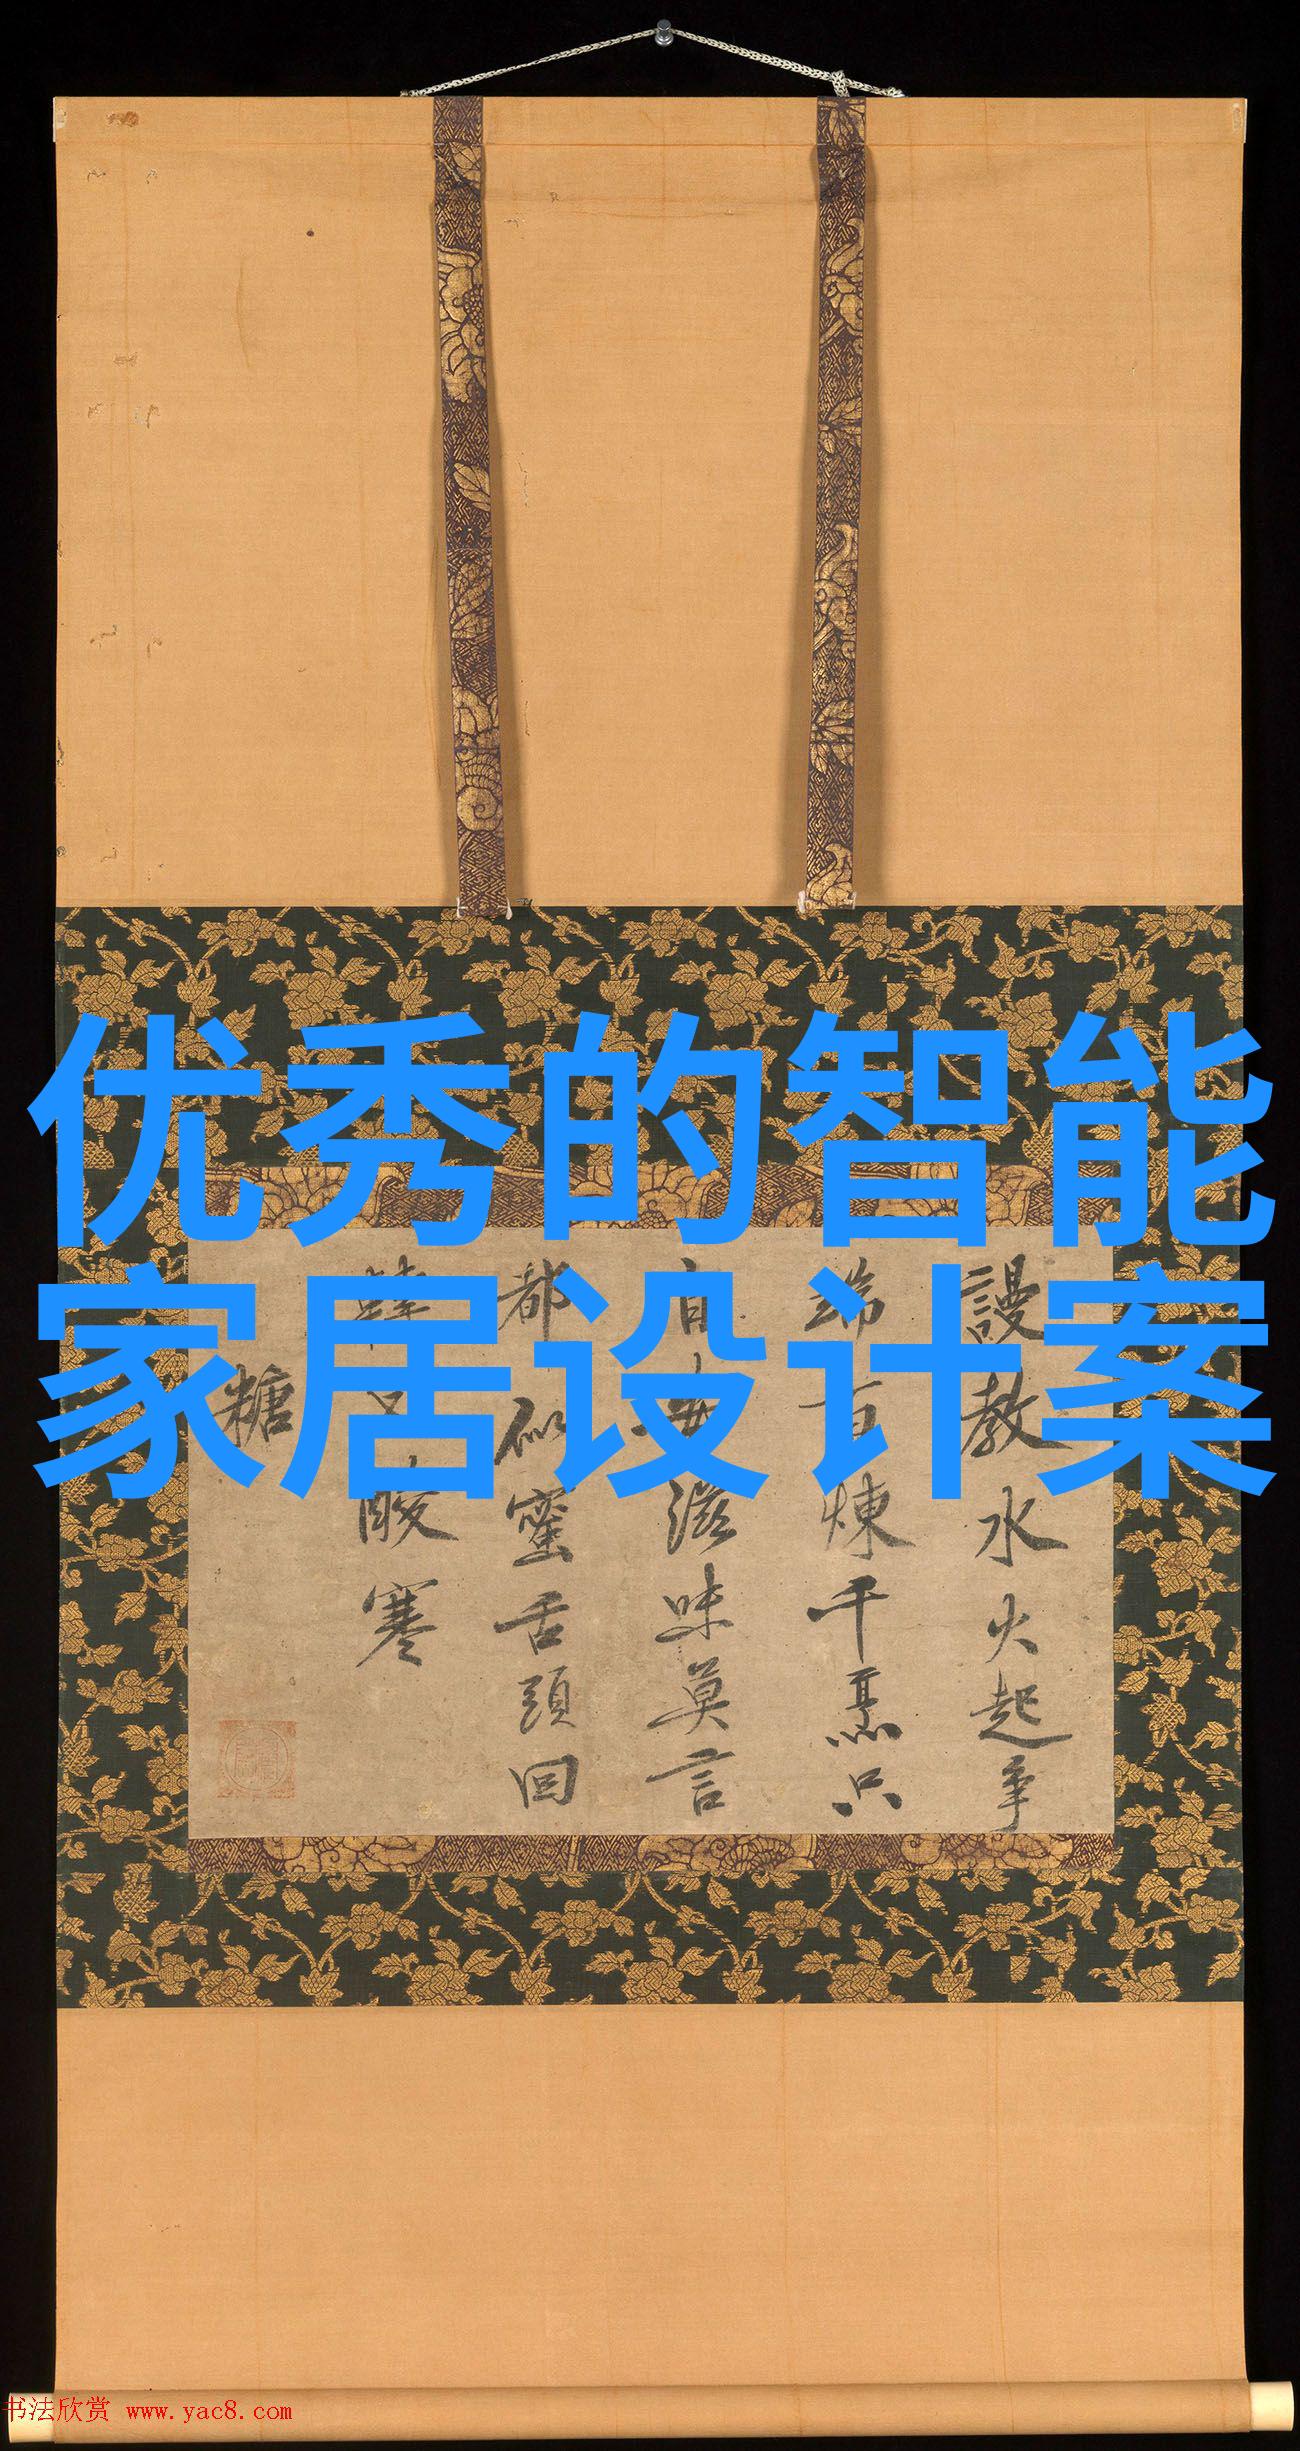 优秀的智能
家居设计案
謾教水火起爭
端百煉千烹只
自滋味莫言
都似蜜舌頭回
酸寒
糖
书法欣赏 www.yac8.com